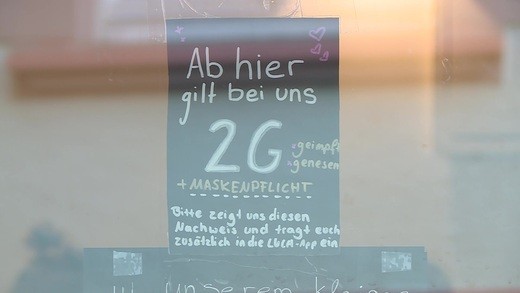 Ab hier
gilt bei uns
2G
geimpft
genesen
+MASKENPFLICHT
Bitte zeigt uns diesen
Nachweis und tragt euch
zusätzlich in die LUCA-App ein
unserem kleinen